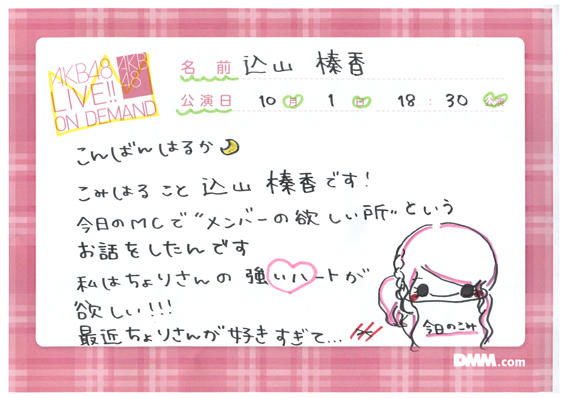 AKB48
LIVE!!
ON DEMAND
AKB
48
名 前 込山 榛香
公演日 10 月 1 日 18 : 30 公演
こんばんはるか
こみはること 込山 榛香です!
今日のMCで"メンバーの欲しい所"という
お話をしたんです
私はちょりさんの 強いハートが
欲しい!!!
最近ちょりさんが好きすぎて...
今日のこみ
DMM.com